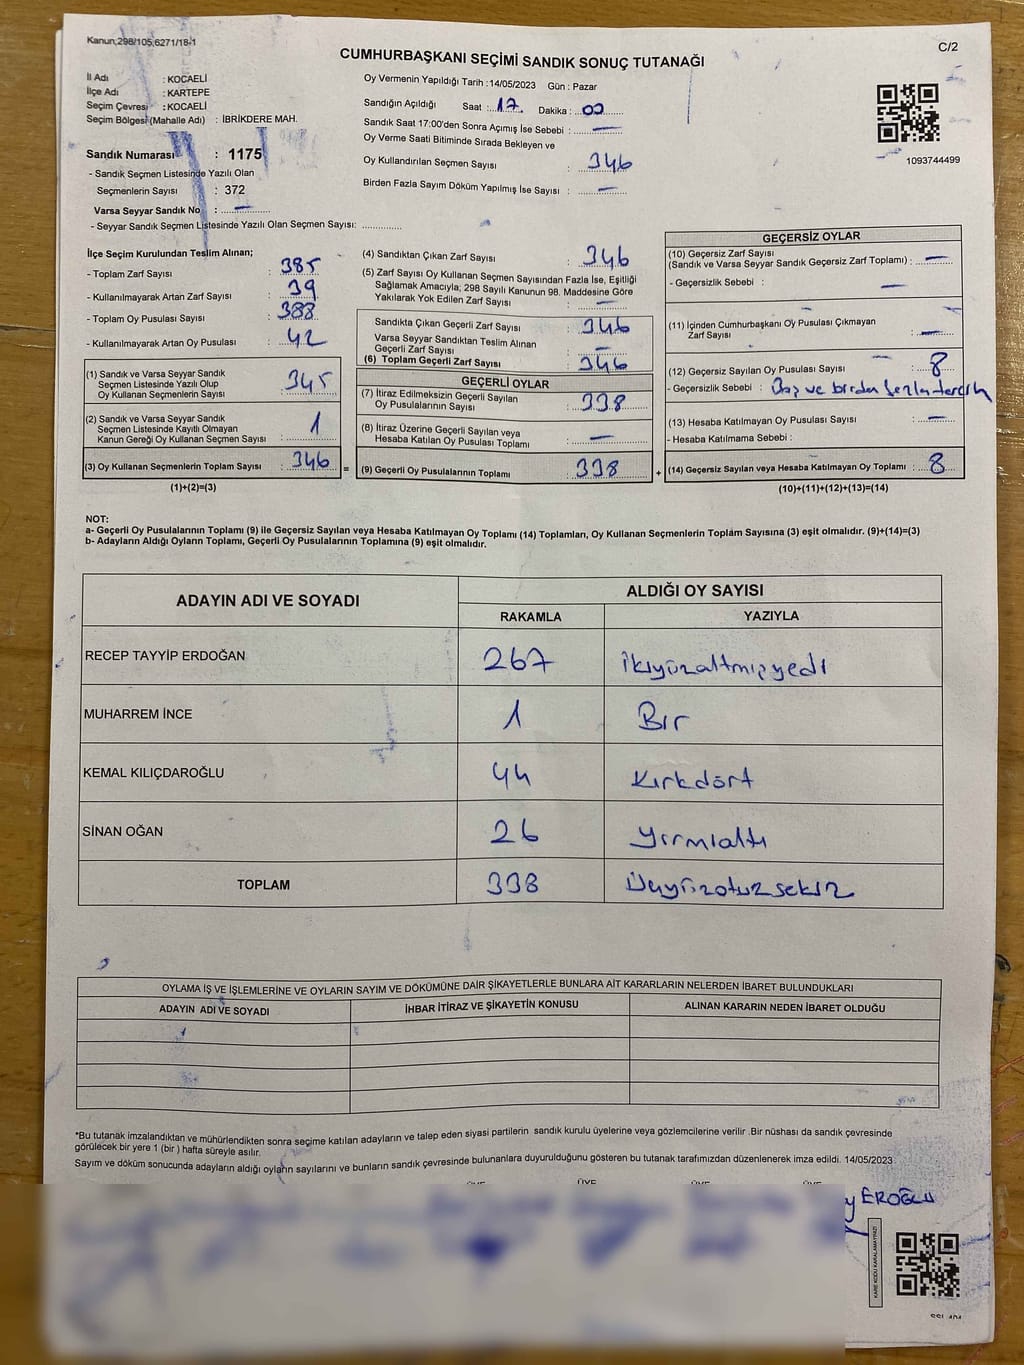 Kanun;298/105,6271/18-1
C/2
CUMHURBAŞKANI SEÇİMİ SANDIK SONUÇ TUTANAĞI
İl Adı : KOCAELİ
İlçe Adı : KARTEPE
Seçim Çevresi : KOCAELİ
Seçim Bölgesi (Mahalle Adı) : İBRİKDERE MAH.
Sandık Numarası : 1175
- Sandık Seçmen Listesinde Yazılı Olan
Seçmenlerin Sayısı : 372
Varsa Seyyar Sandık No : —
- Seyyar Sandık Seçmen Listesinde Yazılı Olan Seçmen Sayısı:
Oy Vermenin Yapıldığı Tarih :14/05/2023 Gün : Pazar
Sandığın Açıldığı Saat : 17 Dakika : 00
Sandık Saat 17:00'den Sonra Açımış İse Sebebi : —
Oy Verme Saati Bitiminde Sırada Bekleyen ve
Oy Kullandırılan Seçmen Sayısı : 346
Birden Fazla Sayım Döküm Yapılmış İse Sayısı : —
1093744499
İlçe Seçim Kurulundan Teslim Alınan;
- Toplam Zarf Sayısı : 385
- Kullanılmayarak Artan Zarf Sayısı : 39
- Toplam Oy Pusulası Sayısı : 388
- Kullanılmayarak Artan Oy Pusulası : 42
(1) Sandık ve Varsa Seyyar Sandık
Seçmen Listesinde Yazılı Olup
Oy Kullanan Seçmenlerin Sayısı : 345
(2) Sandık ve Varsa Seyyar Sandık
Seçmen Listesinde Kayıtlı Olmayan
Kanun Gereği Oy Kullanan Seçmen Sayısı : 1
(3) Oy Kullanan Seçmenlerin Toplam Sayısı : 346
(1)+(2)=(3)
(4) Sandıktan Çıkan Zarf Sayısı : 346
(5) Zarf Sayısı Oy Kullanan Seçmen Sayısından Fazla İse, Eşitliği
Sağlamak Amacıyla; 298 Sayılı Kanunun 98. Maddesine Göre
Yakılarak Yok Edilen Zarf Sayısı : —
Sandıkta Çıkan Geçerli Zarf Sayısı : 346
Varsa Seyyar Sandıktan Teslim Alınan
Geçerli Zarf Sayısı : —
(6) Toplam Geçerli Zarf Sayısı : 346
GEÇERLİ OYLAR
(7) İtiraz Edilmeksizin Geçerli Sayılan
Oy Pusulalarının Sayısı : 338
(8) İtiraz Üzerine Geçerli Sayılan veya
Hesaba Katılan Oy Pusulası Toplamı : —
= (9) Geçerli Oy Pusulalarının Toplamı : 338
GEÇERSİZ OYLAR
(10) Geçersiz Zarf Sayısı
(Sandık ve Varsa Seyyar Sandık Geçersiz Zarf Toplamı) : —
- Geçersizlik Sebebi : —
(11) İçinden Cumhurbaşkanı Oy Pusulası Çıkmayan
Zarf Sayısı : —
(12) Geçersiz Sayılan Oy Pusulası Sayısı : 8
- Geçersizlik Sebebi : Boş ve birden fazla tercih
(13) Hesaba Katılmayan Oy Pusulası Sayısı : —
- Hesaba Katılmama Sebebi :
+ (14) Geçersiz Sayılan veya Hesaba Katılmayan Oy Toplamı : 8
(10)+(11)+(12)+(13)=(14)
NOT:
a- Geçerli Oy Pusulalarının Toplamı (9) ile Geçersiz Sayılan veya Hesaba Katılmayan Oy Toplamı (14) Toplamları, Oy Kullanan Seçmenlerin Toplam Sayısına (3) eşit olmalıdır. (9)+(14)=(3)
b- Adayların Aldığı Oyların Toplamı, Geçerli Oy Pusulalarının Toplamına (9) eşit olmalıdır.
ADAYIN ADI VE SOYADI
ALDIĞI OY SAYISI
RAKAMLA YAZIYLA
RECEP TAYYİP ERDOĞAN 267 ikiyüzaltmışyedi
MUHARREM İNCE 1 Bir
KEMAL KILIÇDAROĞLU 44 Kırkdört
SİNAN OĞAN 26 yirmialtı
TOPLAM 338 Üçyüzotuzsekiz
OYLAMA İŞ VE İŞLEMLERİNE VE OYLARIN SAYIM VE DÖKÜMÜNE DAİR ŞİKAYETLERLE BUNLARA AİT KARARLARIN NELERDEN İBARET BULUNDUKLARI
ADAYIN ADI VE SOYADI İHBAR İTİRAZ VE ŞİKAYETİN KONUSU ALINAN KARARIN NEDEN İBARET OLDUĞU
*Bu tutanak imzalandıktan ve mühürlendikten sonra seçime katılan adayların ve talep eden siyasi partilerin sandık kurulu üyelerine veya gözlemcilerine verilir .Bir nüshası da sandık çevresinde
görülecek bir yere 1 (bir ) hafta süreyle asılır.
Sayım ve döküm sonucunda adayların aldığı oyların sayılarını ve bunların sandık çevresinde bulunanlara duyurulduğunu gösteren bu tutanak tarafımızdan düzenlenerek imza edildi. 14/05/2023
EROĞLU
KARE KODU KARALAMAYINIZ!